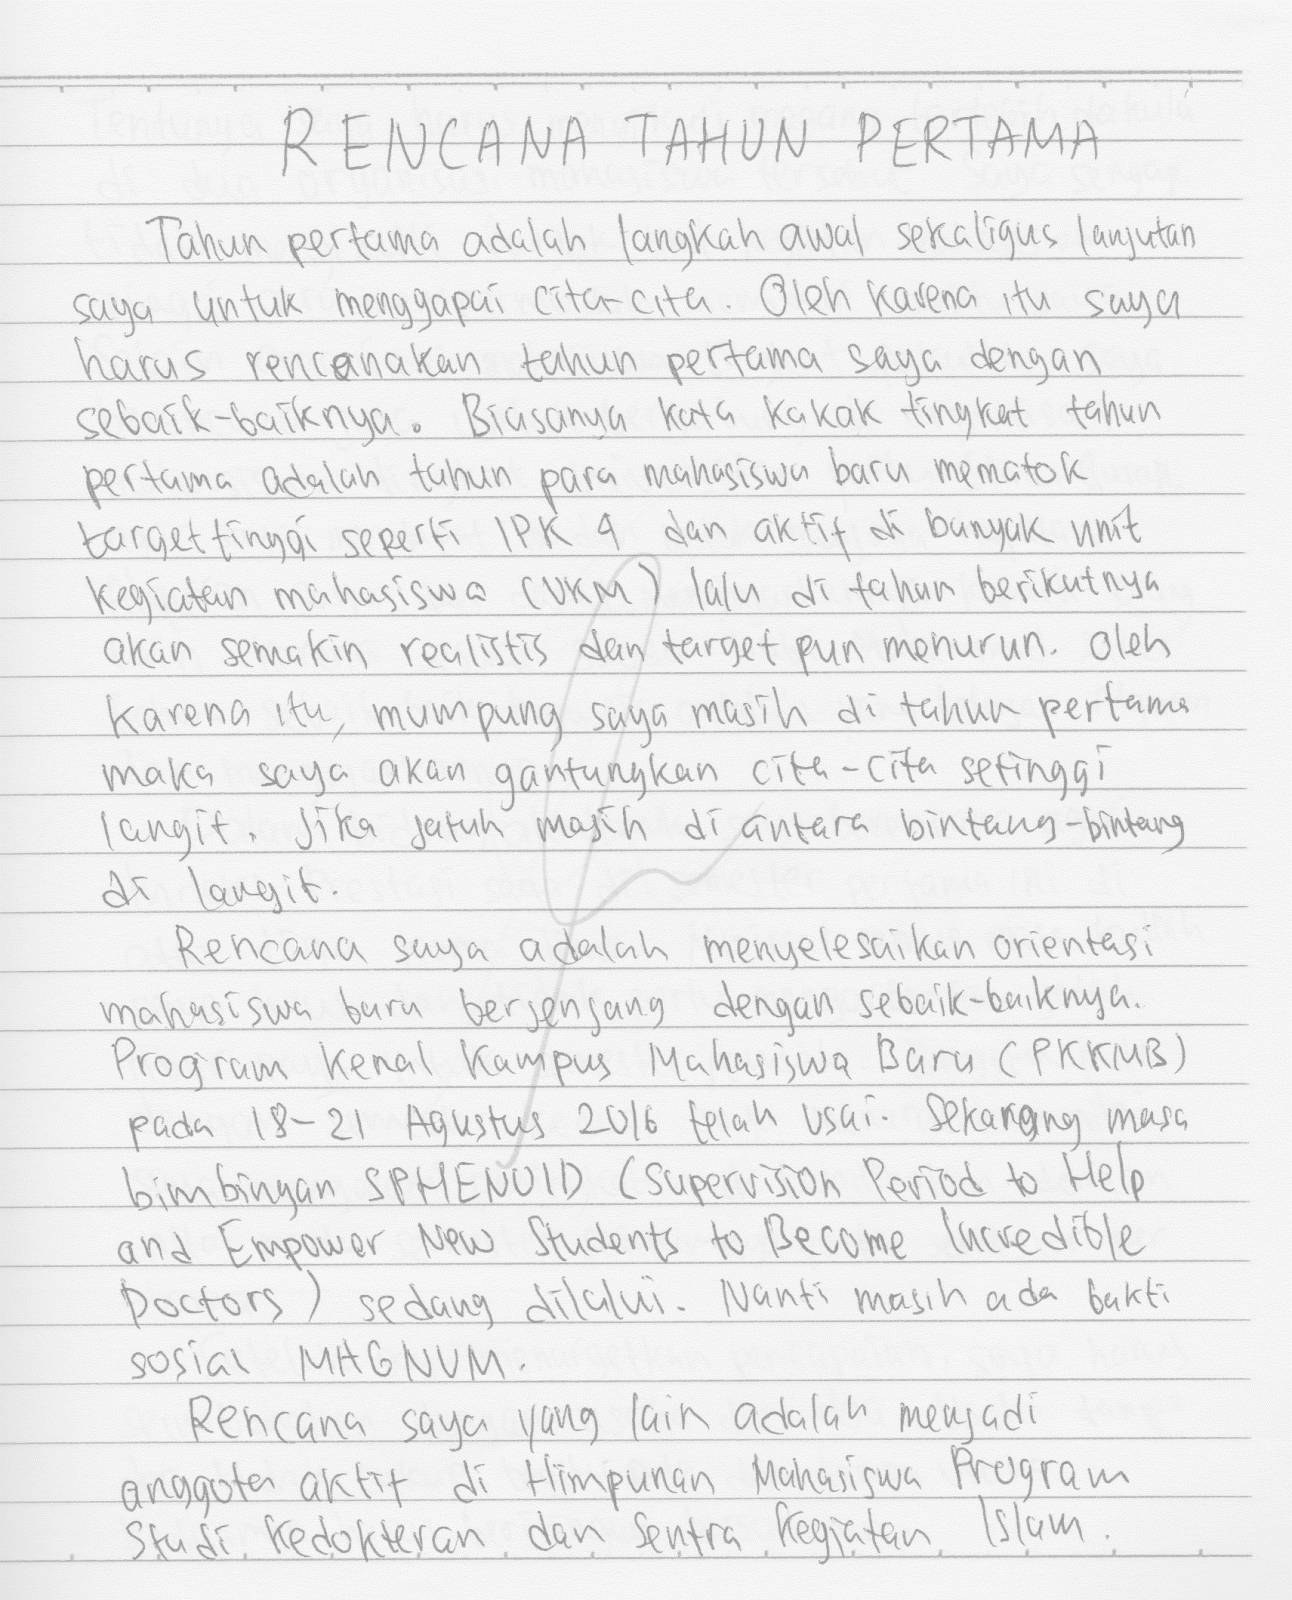 RENCANA TAHUN PERTAMA
Tahun pertama adalah langkah awal sekaligus lanjutan
saya untuk menggapai cita-cita. Oleh karena itu saya
harus rencanakan tahun pertama saya dengan
sebaik-baiknya. Biasanya kata kakak tingkat tahun
pertama adalah tahun para mahasiswa baru mematok
target tinggi seperti IPK 4 dan aktif di banyak unit
kegiatan mahasiswa (UKM) lalu di tahun berikutnya
akan semakin realistis dan target pun menurun. Oleh
karena itu, mumpung saya masih di tahun pertama
maka saya akan gantungkan cita-cita setinggi
langit. Jika jatuh masih di antara bintang-bintang
di langit.
Rencana saya adalah menyelesaikan orientasi
mahasiswa baru berjenjang dengan sebaik-baiknya.
Program Kenal Kampus Mahasiswa Baru (PKKMB)
pada 18-21 Agustus 2016 telah usai. Sekarang masa
bimbingan SPHENOID (Supervision Period to Help
and Empower New Students to Become Incredible
Doctors) sedang dilalui. Nanti masih ada bakti
sosial MAGNUM.
Rencana saya yang lain adalah menjadi
anggota aktif di Himpunan Mahasiswa Program
Studi Kedokteran dan Sentra Kegiatan Islam.